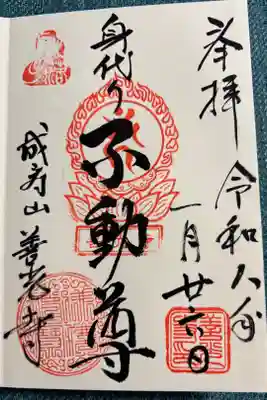 奉拝
令和八年
一月廿六日
身代り
不動尊
成寿山 善光寺